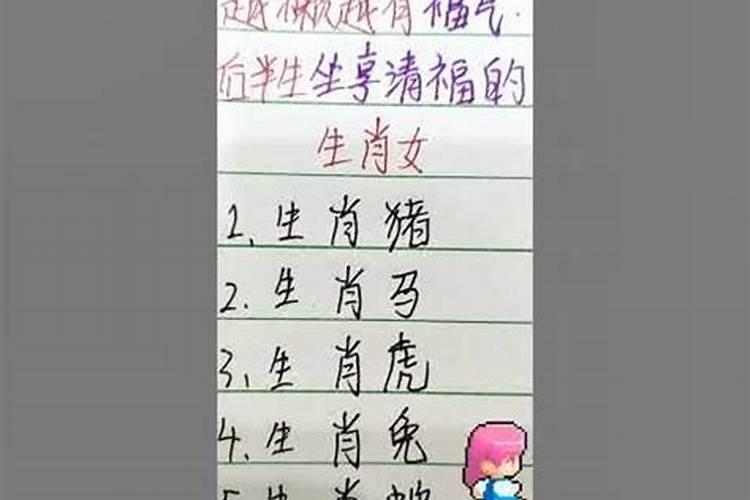 越懒越有福气.
后半生坐享清福的
生肖女
1、生肖猪
2.生肖马
3、生肖虎
4.生肖兔
5.生肖